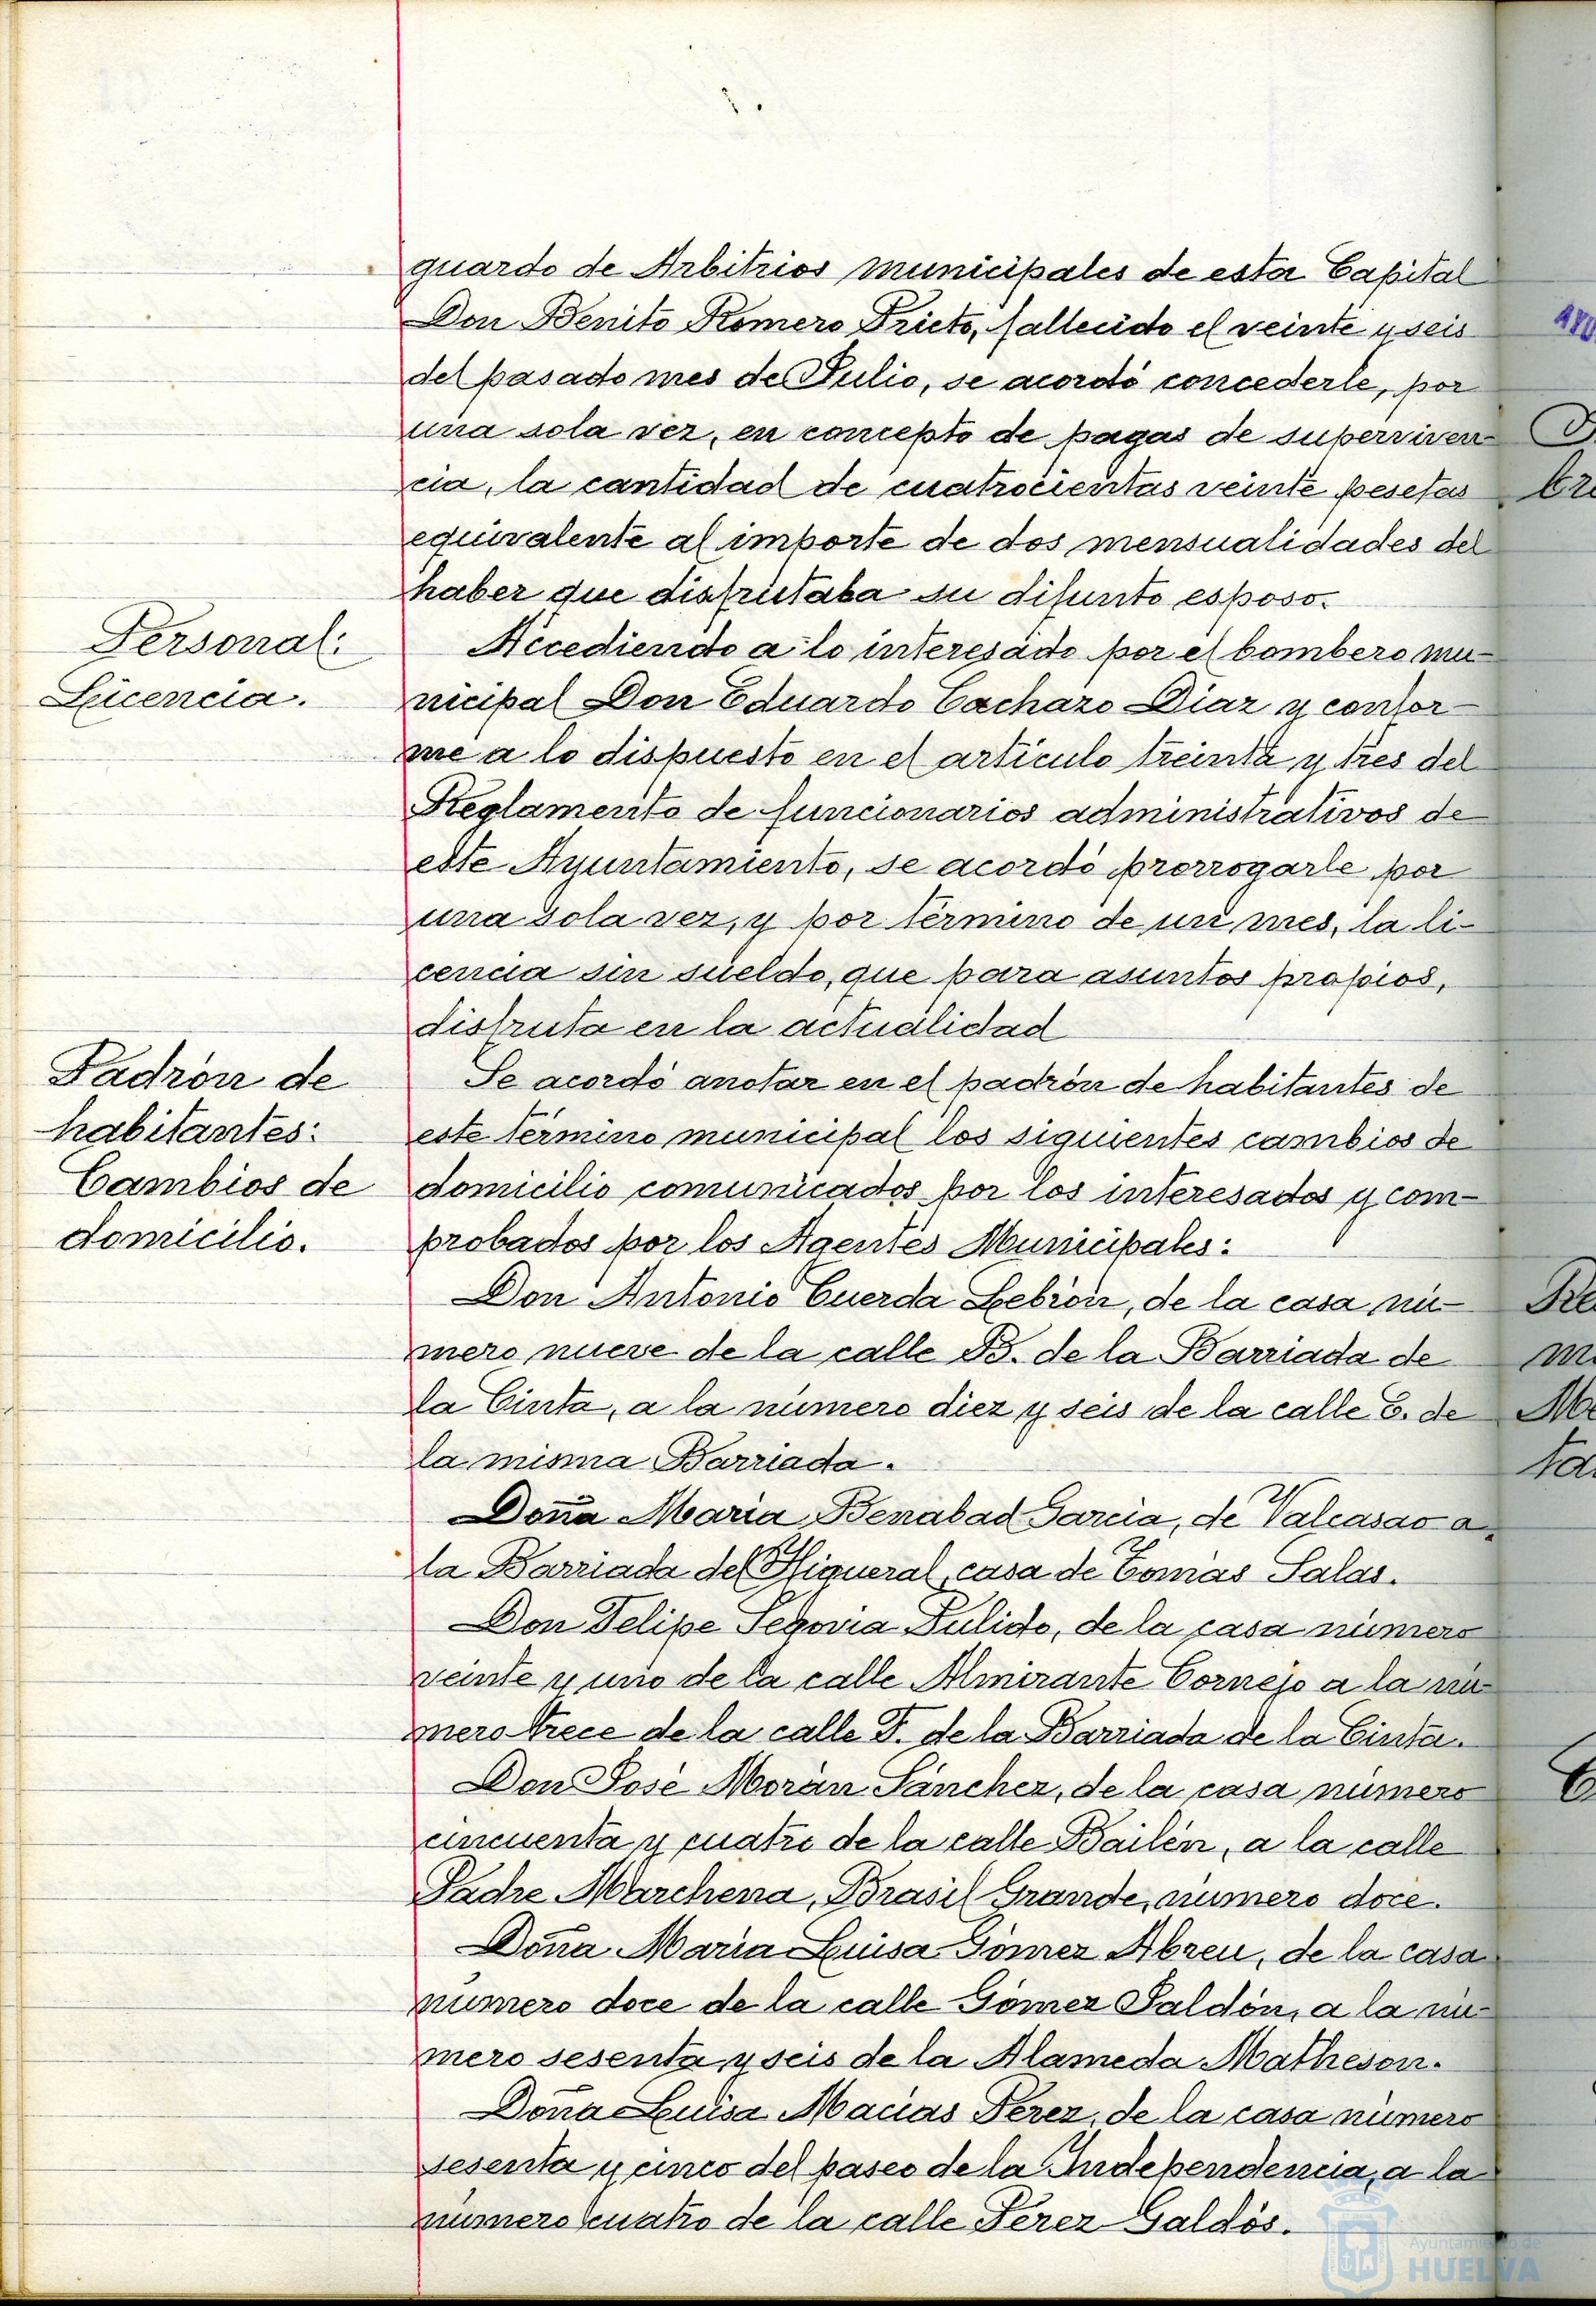 guardo de Arbitrios municipales de esta Capital
Don Benito Romero Prieto, fallecido el veinte y seis
del pasado mes de Julio, se acordó concederle, por
una sola vez, en concepto de pagas de superviven-
cia, la cantidad de cuatrocientas veinte pesetas
equivalente al importe de dos mensualidades del
haber que disfrutaba su difunto esposo.
Personal:
Licencia.
Accediendo a lo interesado por el bombero mu-
nicipal Don Eduardo Cacharo Diaz y confor-
me a lo dispuesto en el artículo treinta y tres del
Reglamento de funcionarios administrativos de
este Ayuntamiento, se acordó prorrogarle por
una sola vez, y por término de un mes, la li-
cencia sin sueldo, que para asuntos propios,
disfruta en la actualidad
Padrón de
habitantes:
Cambios de
domicilio.
Se acordó anotar en el padrón de habitantes de
este término municipal los siguientes cambios de
domicilio comunicados por los interesados y com-
probados por los Agentes Municipales:
Don Antonio Cuerda Lebrón, de la casa nú-
mero nueve de la calle B. de la Barriada de
la Cinta, a la número diez y seis de la calle C. de
la misma Barriada.
Doña Maria Benabad Garcia, de Valcasao a
la Barriada del Higueral, casa de Tomás Salas.
Don Felipe Segovia Pulido, de la casa número
veinte y uno de la calle Almirante Cornejo a la nú-
mero trece de la calle F. de la Barriada de la Cinta.
Don José Morán Sánchez, de la casa número
cincuenta y cuatro de la calle Bailén, a la calle
Padre Marchena, Brasil Grande, número doce.
Doña Maria Luisa Gómez Abreu, de la casa
número doce de la calle Gómez Jaldón, a la nú-
mero sesenta y seis de la Alameda Matheson.
Doña Luisa Macías Pérez, de la casa número
sesenta y cinco del paseo de la Independencia, a la
número cuatro de la calle Pérez Galdós.
Ayuntamiento de
HUELVA